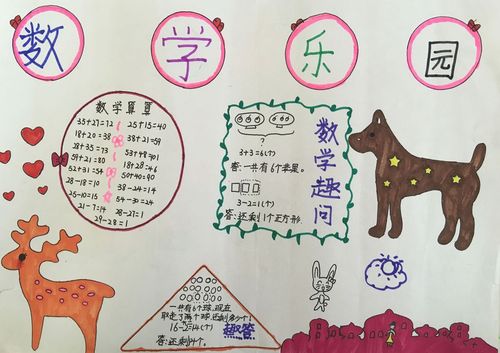 数学乐园
数学算算
35+27=72 25+15=40
18+20=38 38+21=59
28+35=73 53+48=101
59+21=80 18+28=46
52+31=54 50+40=90
28-18=10 38-24=14
25-10=15 54-30=24
21-7=14 28-27=1
29-28=1
?
3+3=6(个)
答:一共有6个苹果。
3-2=1(个)
答:还剩1个正方形.
数学趣问
一共有16个球,现在
取走了两个球,还剩多少个?
16-2=14(个)
趣答
答:还剩14个.